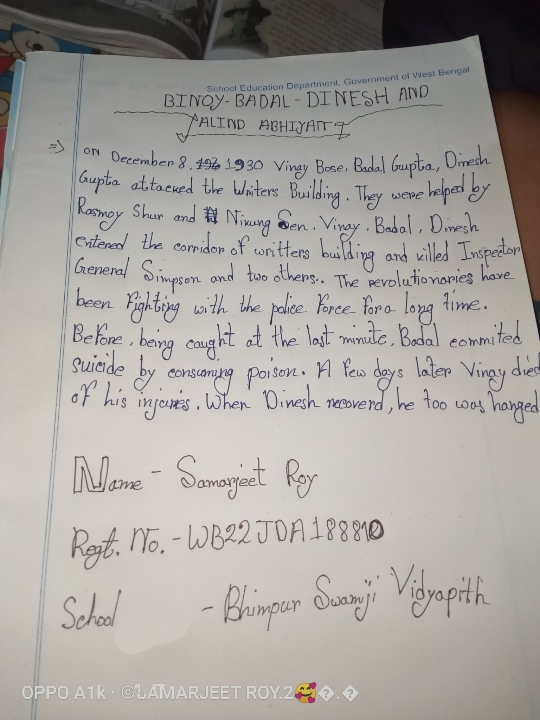 School Education Department, Government of West Bengal
BINOY-BADAL-DINESH AND
ALIND ABHIYAN
⇒ ON December 8. 1930 Vinay Bose. Badal Gupta, Dinesh
Gupta attacked the Writers Building. They were helped by
Rasmoy Shur and Nikung Sen. Vinay. Badal, Dinesh
entened the corridor of writters building and killed Inspector
General Simpson and two others.. The revolutionaries have
been Fighting with the police Force for a long time.
Before, being caught at the last minute, Badal commited
suicide by consuming poison. A Few days later Vinay died
of his injures. When Dinesh recoverd, he too was hanged
Name - Samarjeet Roy
Regt. No. - WB22JDA188810
School - Bhimpur Swamji Vidyapith
OPPO A1k · ©LAMARJEET ROY.2🥰�.�